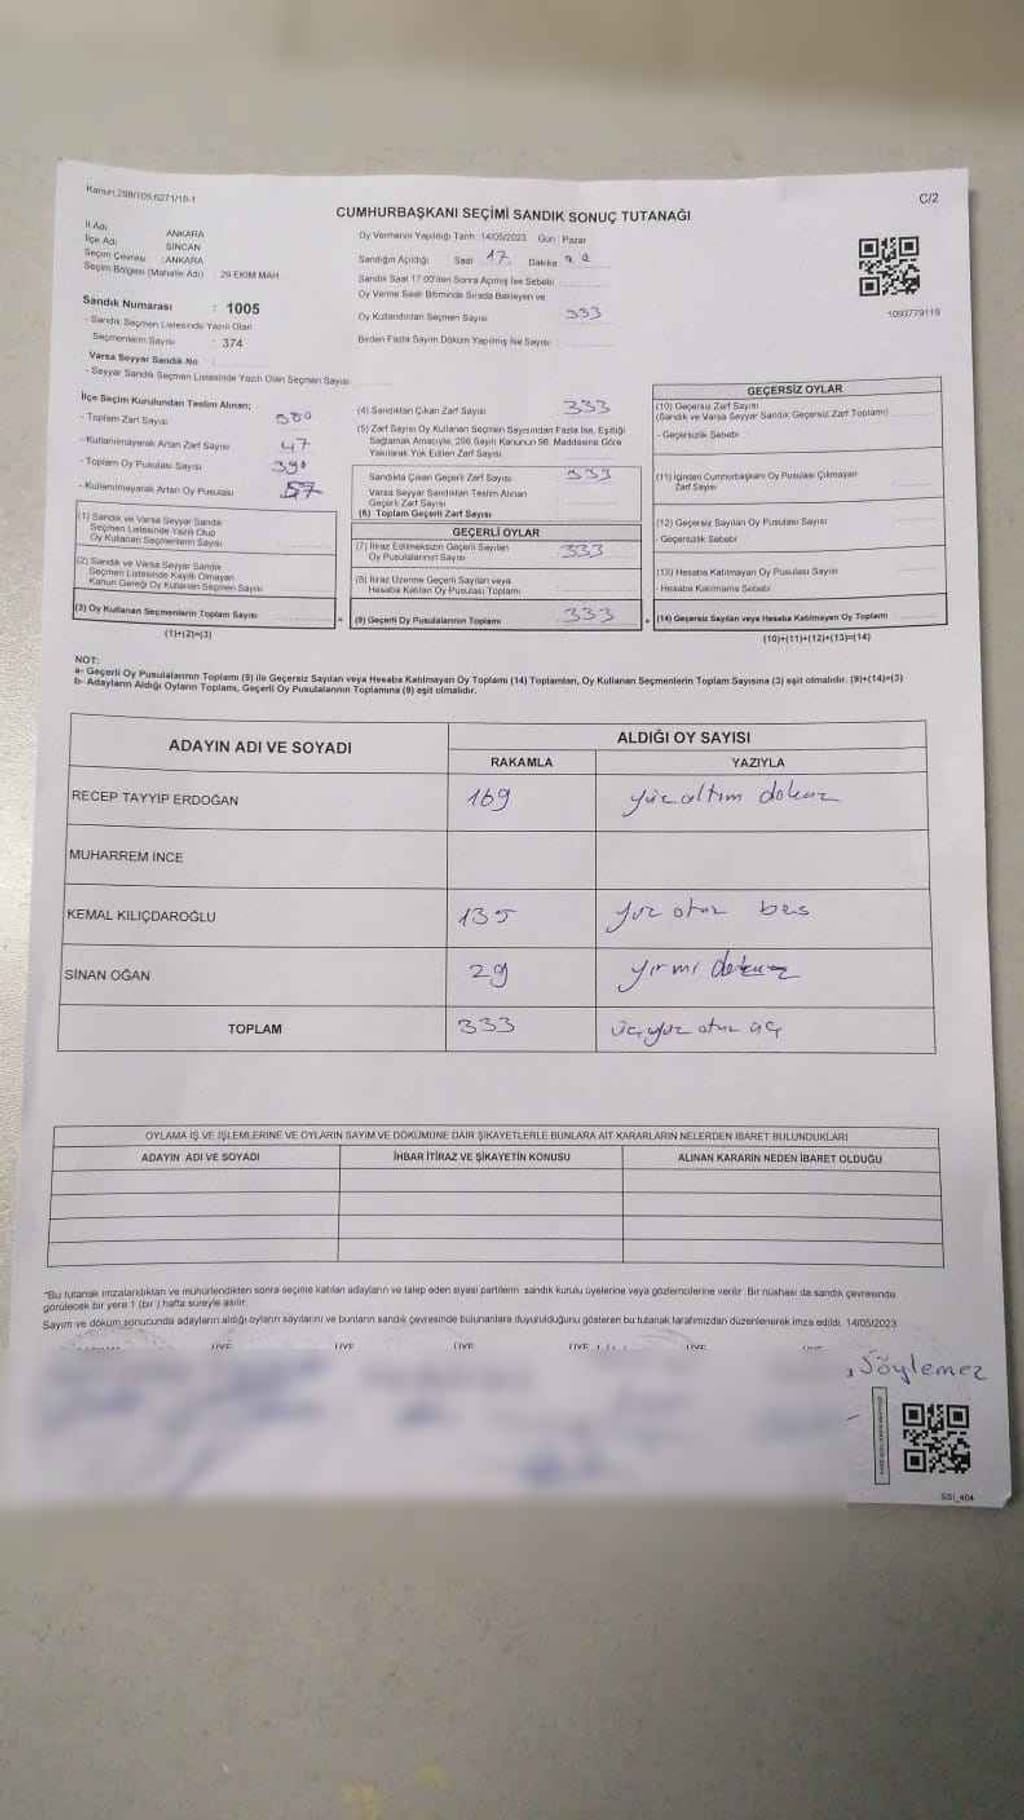 Kanun:298/105,6271/18-1
C/2
CUMHURBAŞKANI SEÇİMİ SANDIK SONUÇ TUTANAĞI
İl Adı ANKARA
İlçe Adı SİNCAN
Seçim Çevresi : ANKARA
Seçim Bölgesi (Mahalle Adı) 29 EKİM MAH
Sandık Numarası : 1005
- Sandık Seçmen Listesinde Yazılı Olan
Seçmenlerin Sayısı : 374
Varsa Seyyar Sandık No
- Seyyar Sandık Seçmen Listesinde Yazılı Olan Seçmen Sayısı
Oy Vermenin Yapıldığı Tarih: 14/05/2023 Gün : Pazar
Sandığın Açıldığı Saat 17 Dakika
Sandık Saat 17:00'den Sonra Açılmış İse Sebebi
Oy Verme Saati Bitiminde Sırada Bekleyen ve
Oy Kullandırılan Seçmen Sayısı 333
Birden Fazla Sayım Döküm Yapılmış İse Sayısı
1093779119
İlçe Seçim Kurulundan Teslim Alınan;
- Toplam Zarf Sayısı 380
- Kullanılmayarak Artan Zarf Sayısı 47
- Toplam Oy Pusulası Sayısı 390
- Kullanılmayarak Artan Oy Pusulası 57
(1) Sandık ve Varsa Seyyar Sandık
Seçmen Listesinde Yazılı Olup
Oy Kullanan Seçmenlerin Sayısı
(2) Sandık ve Varsa Seyyar Sandık
Seçmen Listesinde Kayıtlı Olmayan
Kanun Gereği Oy Kullanan Seçmen Sayısı
(3) Oy Kullanan Seçmenlerin Toplam Sayısı
(1)+(2)=(3)
(4) Sandıktan Çıkan Zarf Sayısı 333
(5) Zarf Sayısı Oy Kullanan Seçmen Sayısından Fazla İse, Eşitliği
Sağlamak Amacıyla, 298 Sayılı Kanunun 98. Maddesine Göre
Yakılarak Yok Edilen Zarf Sayısı
Sandıkta Çıkan Geçerli Zarf Sayısı 333
Varsa Seyyar Sandıktan Teslim Alınan
Geçerli Zarf Sayısı
(6) Toplam Geçerli Zarf Sayısı
GEÇERLİ OYLAR
(7) İtiraz Edilmeksizin Geçerli Sayılan
Oy Pusulalarının Sayısı 333
(8) İtiraz Üzerine Geçerli Sayılan veya
Hesaba Katılan Oy Pusulası Toplamı
(9) Geçerli Oy Pusulalarının Toplamı 333
GEÇERSİZ OYLAR
(10) Geçersiz Zarf Sayısı
(Sandık ve Varsa Seyyar Sandık Geçersiz Zarf Toplamı)
- Geçersizlik Sebebi
(11) İçinden Cumhurbaşkanı Oy Pusulası Çıkmayan
Zarf Sayısı
(12) Geçersiz Sayılan Oy Pusulası Sayısı
- Geçersizlik Sebebi
(13) Hesaba Katılmayan Oy Pusulası Sayısı
- Hesaba Katılmama Sebebi
(14) Geçersiz Sayılan veya Hesaba Katılmayan Oy Toplamı
(10)+(11)+(12)+(13)=(14)
NOT:
a- Geçerli Oy Pusulalarının Toplamı (9) ile Geçersiz Sayılan veya Hesaba Katılmayan Oy Toplamı (14) Toplamları, Oy Kullanan Seçmenlerin Toplam Sayısına (3) eşit olmalıdır. (9)+(14)=(3)
b- Adayların Aldığı Oyların Toplamı, Geçerli Oy Pusulalarının Toplamına (9) eşit olmalıdır.
ADAYIN ADI VE SOYADI ALDIĞI OY SAYISI
RAKAMLA YAZIYLA
RECEP TAYYIP ERDOĞAN 169 yüz altım dokuz
MUHARREM İNCE
KEMAL KILIÇDAROĞLU 135 yuz otuz bes
SİNAN OĞAN 29 yırmı dokuz
TOPLAM 333 üçyuz otuz üç
OYLAMA İŞ VE İŞLEMLERİNE VE OYLARIN SAYIM VE DÖKÜMÜNE DAİR ŞİKAYETLERLE BUNLARA AİT KARARLARIN NELERDEN İBARET BULUNDUKLARI
ADAYIN ADI VE SOYADI İHBAR İTİRAZ VE ŞİKAYETİN KONUSU ALINAN KARARIN NEDEN İBARET OLDUĞU
"Bu tutanak imzalandıktan ve mühürlendikten sonra seçime katılan adayların ve talep eden siyasi partilerin sandık kurulu üyelerine veya gözlemcilerine verilir. Bir nüshası da sandık çevresinde
görülecek bir yere 1 (bir) hafta süreyle asılır.
Sayım ve döküm sonucunda adayların aldığı oyların sayılarını ve bunların sandık çevresinde bulunanlara duyurulduğunu gösteren bu tutanak tarafımızdan düzenlenerek imza edildi. 14/05/2023
ÜYE ÜYE ÜYE ÜYE ÜYE
Söylemez
SSİ_404